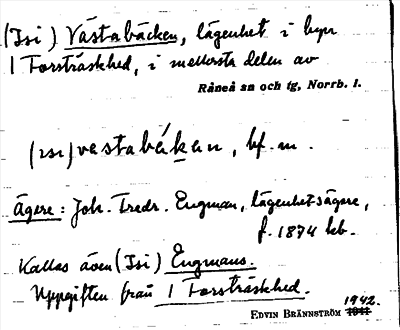 (Isi) Västabäcken, lägenhet i byn
1 Forsträskhed, i mellersta delen av
Råneå sn och tg, Norrb. l.
(ısı) vestabékan, bf. m.
Ägare: Joh. Fredr. Engman, lägenhetsägare,
f. 1874 kb.
Kallas även (Isi) Engmans.
Uppgiften från 1 Forsträskhed.
1942.
EDVIN BRÄNNSTRÖM 1941